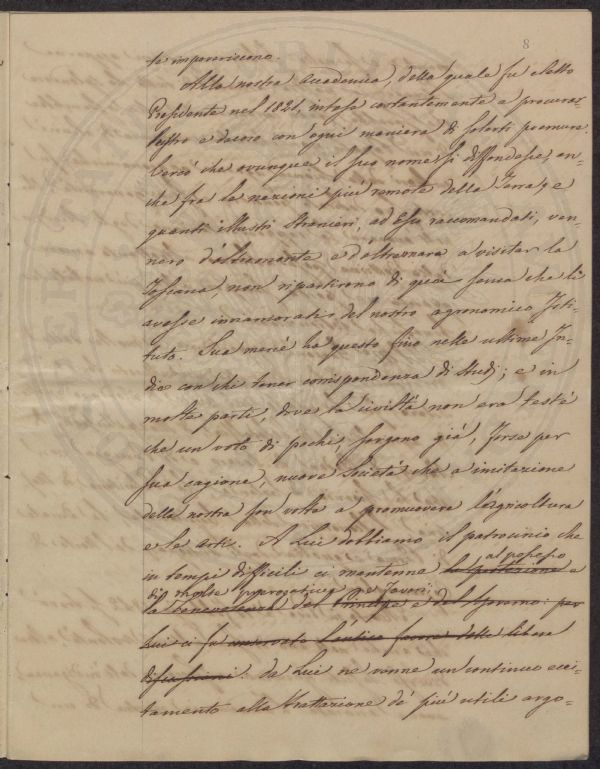 8
te impoveriscono.
Alla nostra Accademia, della quale fu eletto
Presidente nel 1821, intese costantemente a procurar
lustro e decoro con ogni maniera di solerti premure.
Cercò che ovunque il suo nome si diffondesse, an-
che fra le nazioni più remote della Terra; e
quanti illustri Stranieri, ad Esso raccomandati, ven-
nero d'oltremonte e d'oltremare a visitar la
Toscana, non ripartirono di quà senza che li
avesse innamorati del nostro agronomico Isti-
tuto. Sua mercè ha questo fino nelle ultime In-
die con chi tener corrispondenza di Studj; e in
molte parti, dove la civiltà non era testè
che un voto di pochi, sorgono già, forse per
sua cagione, nuove Società che a imitazione
della nostra son volte a promuovere l'agricoltura
e le arti. A Lui dobbiamo il patrocinio che
al possesso
in tempi difficili ci mantenne la protezione e
di molte prerogative e favori;
la benevolenza del Principe e del Governo: per
Lui ci fu libera
discussioni: da Lui ne venne un continuo ecci-
tamento alla trattazione de' più utili argo-